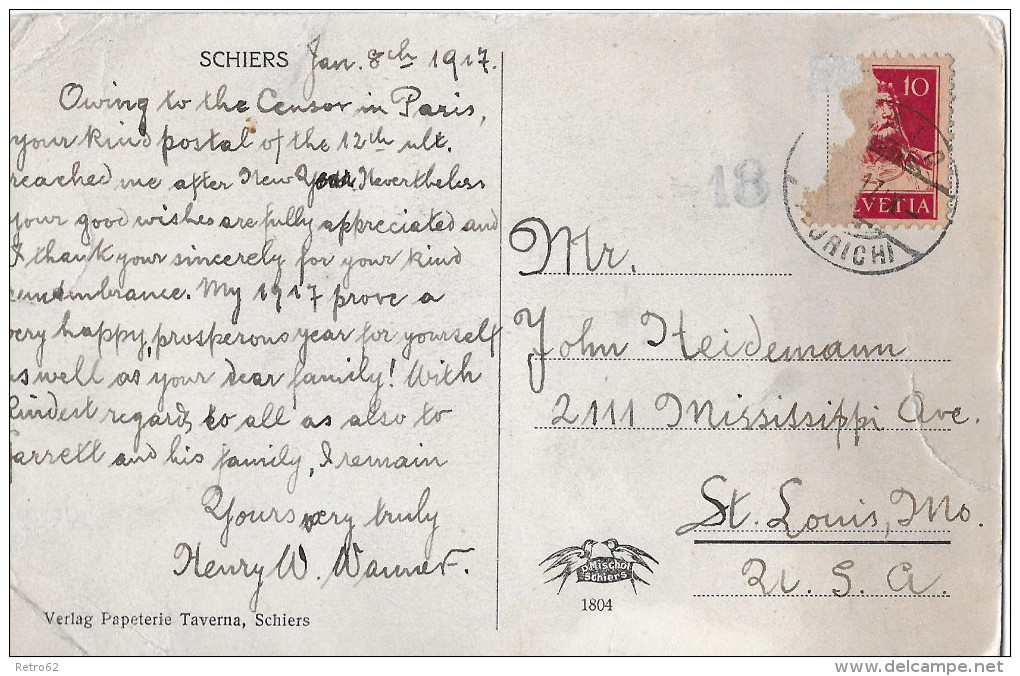 SCHIERS Jan. 8th 1917.
Owing to the Censor in Paris,
your kind postal of the 12th ult.
reached me after New Year. Nevertheless
your good wishes are fully appreciated and
I thank your sincerely for your kind
remembrance. My 1917 prove a
very happy, prosperous year for yourself
as well as your dear family! With
kindest regards to all as also to
Garrett and his family, I remain
Yours very truly
Henry W. Wanner.
Verlag Papeterie Taverna, Schiers
10
HELVETIA
18
Mr.
John Heidemann
2111 Mississippi Ave.
St. Louis, Mo.
U. S. A.
D. Mischol
Schiers
1804
Retro62
delcampe.net